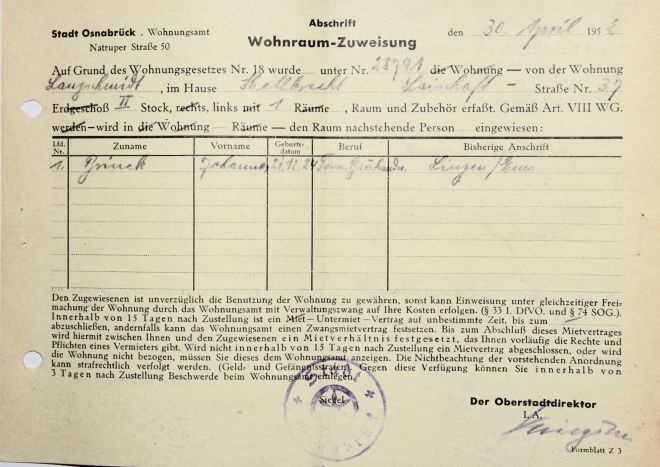 Abschrift
Stadt Osnabrück . Wohnungsamt
Natruper Straße 50
Wohnraum-Zuweisung
den 30. April 1952
Auf Grund des Wohnungsgesetzes Nr. 18 wurde unter Nr. die Wohnung — von der Wohnung
Langschmidt, im Hause Straße Nr. 37
Erdgeschoß II Stock, rechts, links mit 1 Räume, Raum und Zubehör erfaßt. Gemäß Art. VIII WG.
werden – wird in die Wohnung – Räume – den Raum nachstehende Person eingewiesen:
Lfd. Nr. Zuname Vorname Geburts-datum Beruf Bisherige Anschrift
1. Johannes 21.12.24 Lingen/Ems
Den Zugewiesenen ist unverzüglich die Benutzung der Wohnung zu gewähren, sonst kann Einweisung unter gleichzeitiger Frei-
machung der Wohnung durch das Wohnungsamt mit Verwaltungszwang auf Ihre Kosten erfolgen. (§ 33 I. DfVO. und § 74 SOG.)
Innerhalb von 15 Tagen nach Zustellung ist ein Miet – Untermiet – Vertrag auf unbestimmte Zeit, bis zum
abzuschließen, andernfalls kann das Wohnungsamt einen Zwangsmietvertrag festsetzen. Bis zum Abschluß dieses Mietvertrages
wird hiermit zwischen Ihnen und den Zugewiesenen ein Mietverhältnis festgesetzt, das Ihnen vorläufig die Rechte und
Pflichten eines Vermieters gibt. Wird nicht innerhalb von 15 Tagen nach Zustellung ein Mietvertrag abgeschlossen, oder wird
die Wohnung nicht bezogen, müssen Sie dieses dem Wohnungsamt anzeigen. Die Nichtbeachtung der vorstehenden Anordnung
kann strafrechtlich verfolgt werden. (Geld- und Gefängnisstrafen). Gegen diese Verfügung können Sie innerhalb von
3 Tagen nach Zustellung Beschwerde beim Wohnungsamt einlegen.
Siegel
Der Oberstadtdirektor
I. A.
Formblatt Z 3